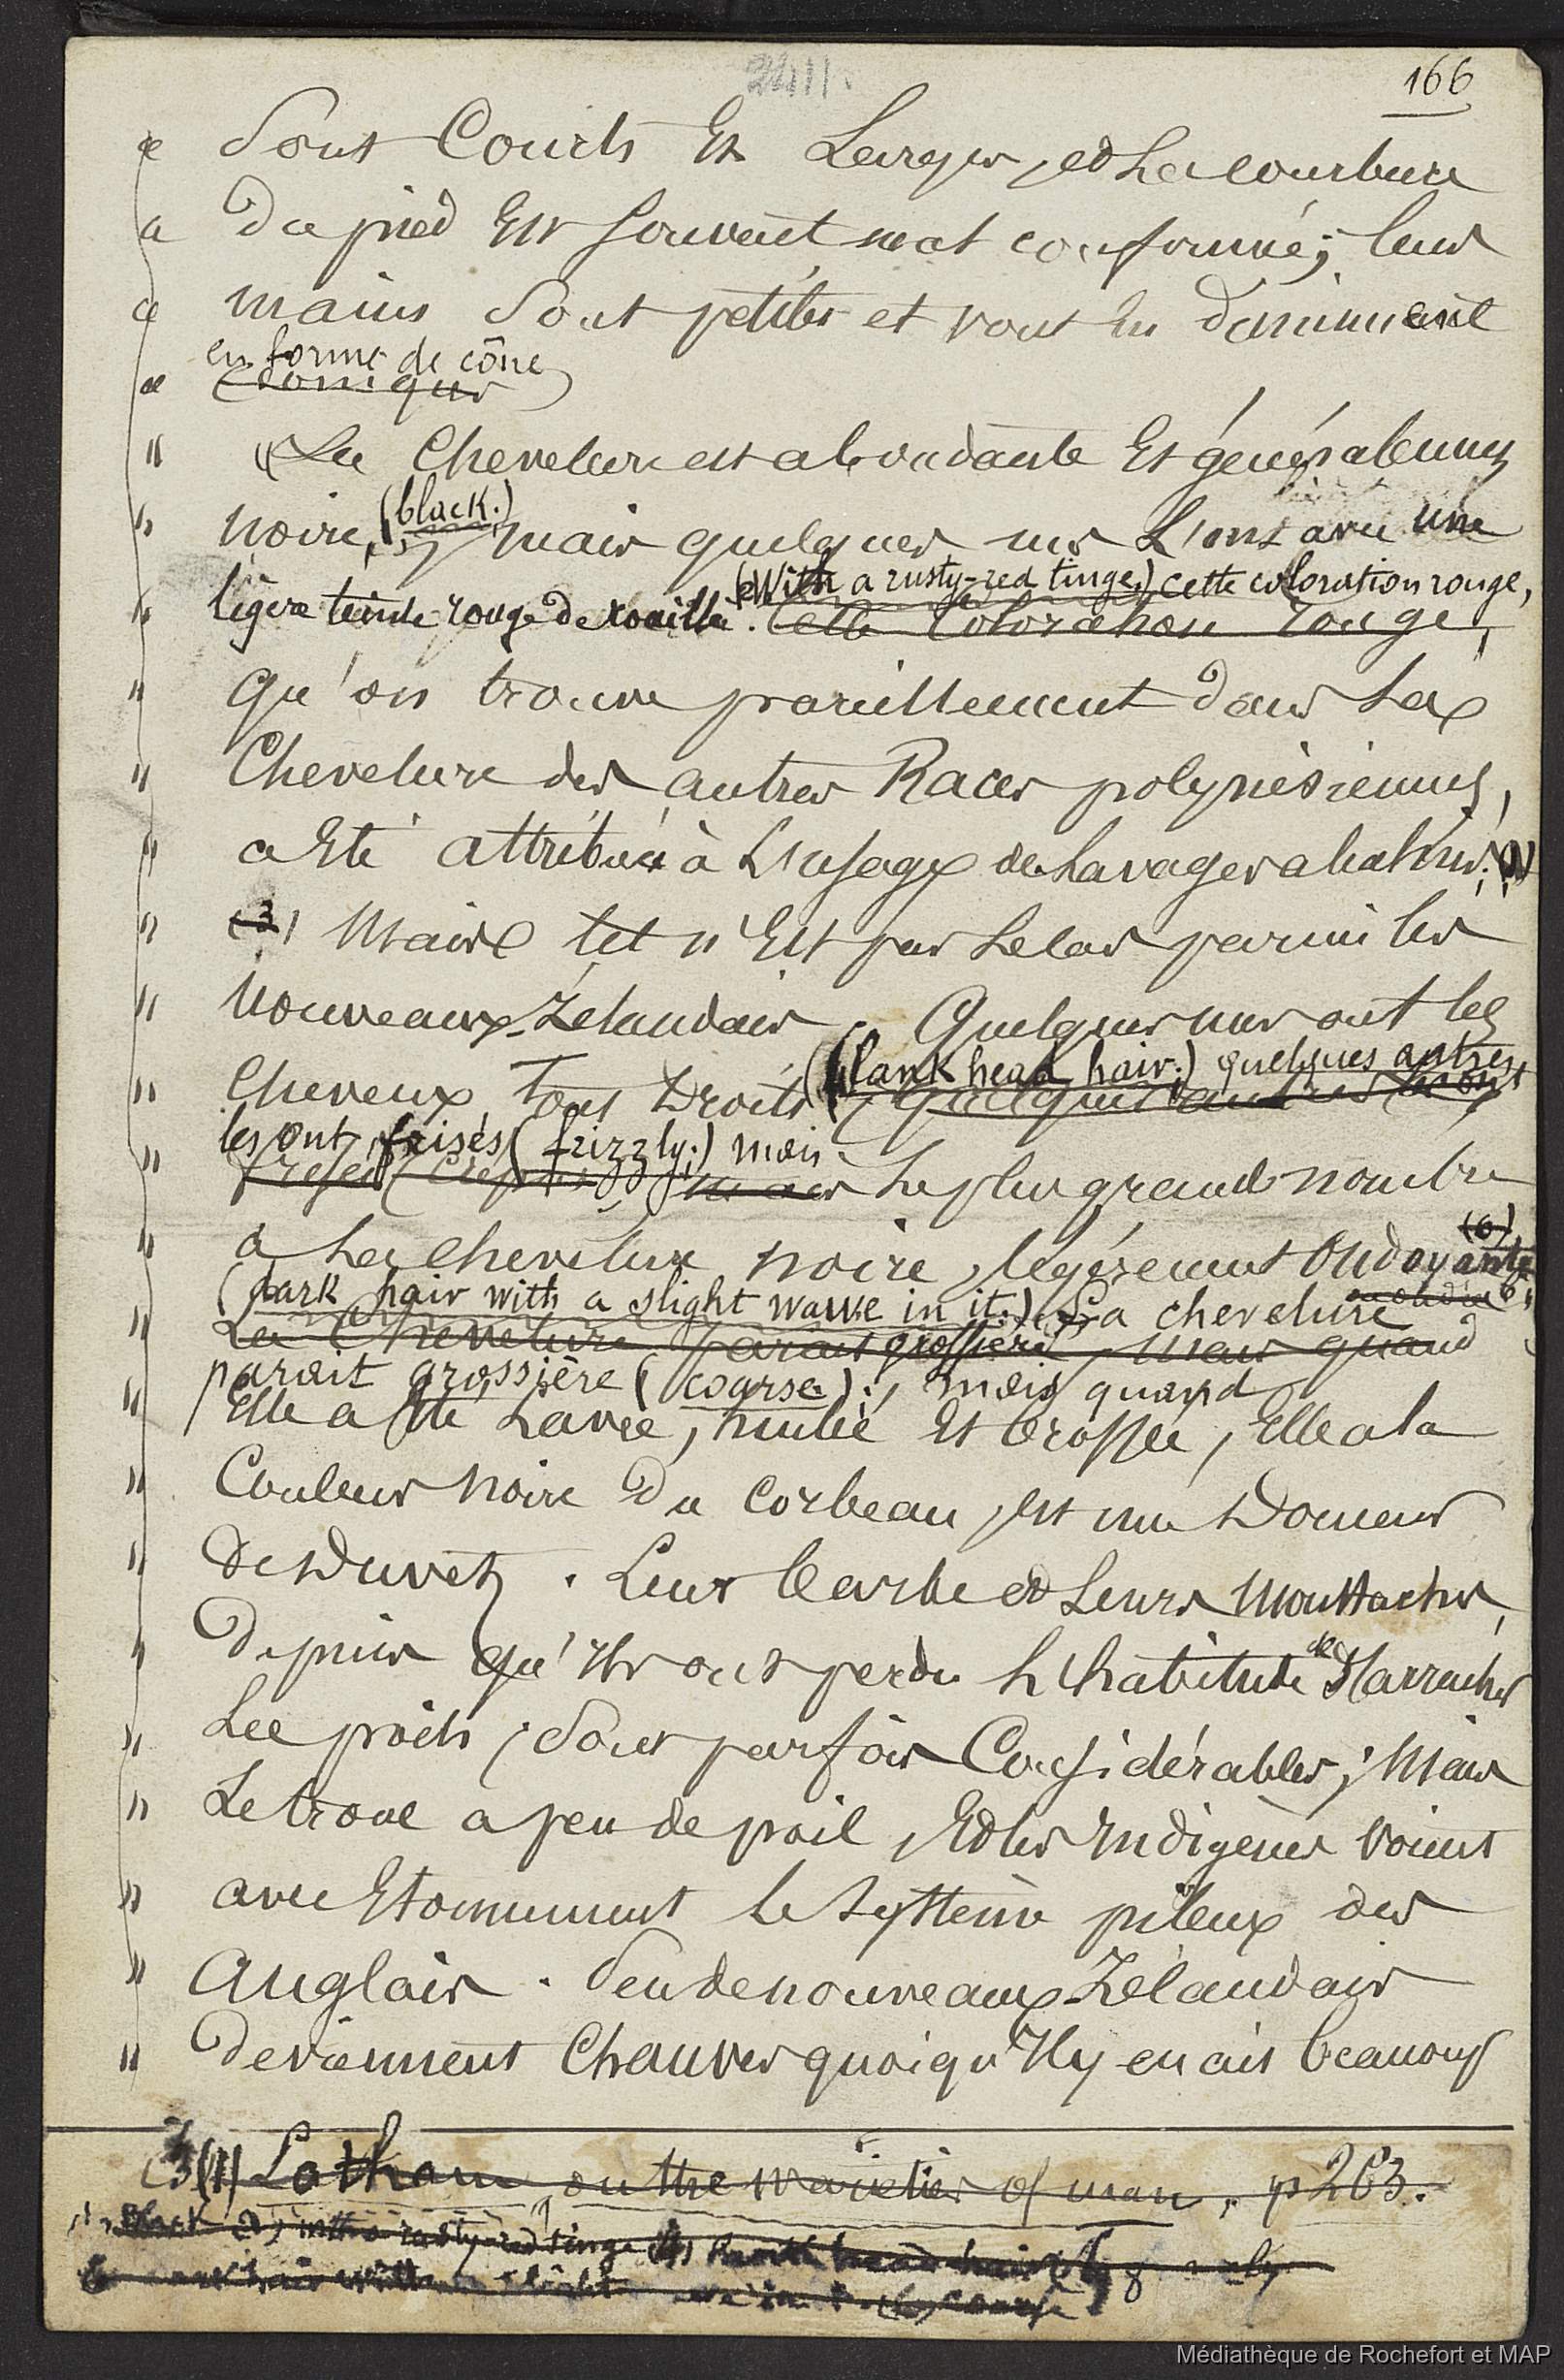 166
Sont Courts Et Larges, et La courbure
Du pied Est souvent mal conformé; leurs
mains Sont petites et vont en diminuant
en forme de cône
Coniques
"La Chevelure est abondante Et généralement
Noire, (black.) mais quelques uns L'ont avec une
(With a rusty-red tinge.) cette coloration rouge,
légère teinte rouge de rouille. Cette Coloration rouge,
qu'on trouve pareillement dans La
Chevelure des autres Races polynésiennes,
a Eté attribuée à L'usage de Lavages alcalins;
(3) Mais tel n'Est pas Le cas parmi les
Nouveaux-Zélandais. Quelques uns ont les
(lank head hair;) quelques autres
Cheveux tous Droits; quelques autres Les ont
les ont frisés (frizzly;) mais
frisés mais Le plus grand nombre
(6)
a La chevelure noire, légèrement Ondoyante
(dark hair with a slight wawe in it.) La chevelure
La Chevelure parait grossière, mais quand
parait grossière (coarse.); mais quand
Elle a Eté Lavée, huilée Et brossée, Elle a la
Couleur Noire Du Corbeau, et une Douceur
De Duvet. Leur barbe et Leurs Moustaches,
Depuis qu'Ils ont perdu L'habitude de S'arracher
Les poils, Sont parfois Considérables; Mais
Le tronc a peu de poil, Et les Indigènes voient
avec Etonnement Le Système pileux des
Anglais. Peu de nouveaux-Zélandais
Deviennent Chauves quoiqu'Il y en ait beaucoup
(1) Latham on the varieties of man, p 263.
black with a rusty-red tinge head hair
dark hair with a slight coarse
Médiathèque de Rochefort et MAP